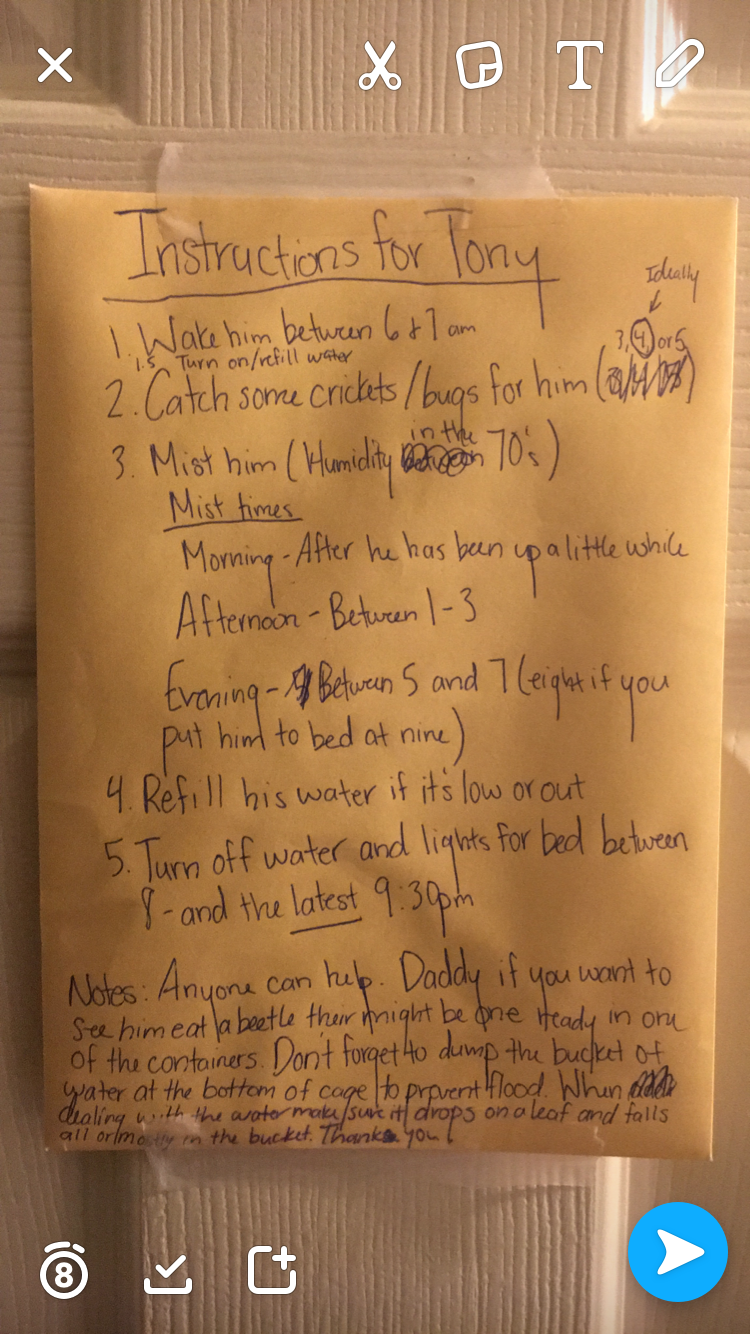 Instructions for Tony
Ideally
1. Wake him between 6 & 7 am
3, 4, or 5
1.5 Turn on/refill water
2. Catch some crickets/bugs for him ( )
in the
3. Mist him (Humidity 70's)
Mist times
Morning - After he has been up a little while
Afternoon - Between 1-3
Evening - Between 5 and 7 (eight if you
put him to bed at nine)
4. Refill his water if it's low or out
5. Turn off water and lights for bed between
8 - and the latest 9:30pm
Notes: Anyone can help. Daddy if you want to
see him eat a beetle their might be one ready in one
of the containers. Don't forget to dump the bucket of
water at the bottom of cage to prevent flood. When
dealing with the water make sure it drops on a leaf and falls
all or mostly in the bucket. Thank you!
8